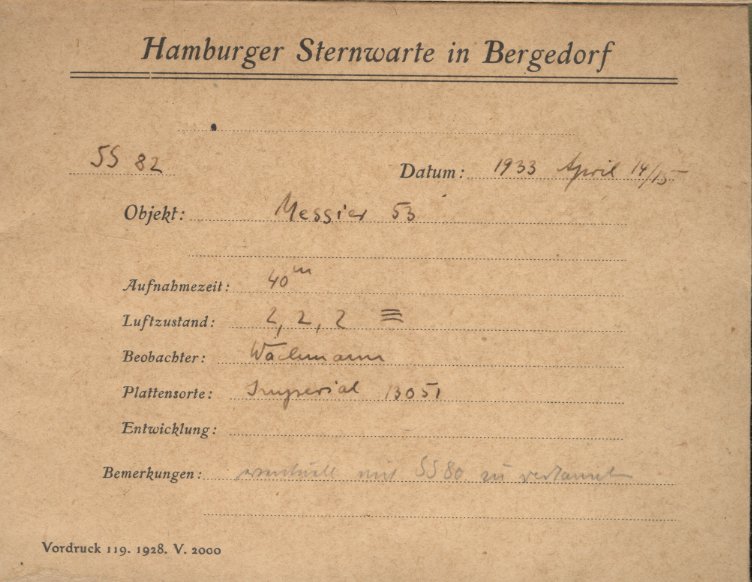 Hamburger Sternwarte in Bergedorf
SS 82
Datum: 1933 April 14/15
Objekt: Messier 53
Aufnahmezeit: 40m
Luftzustand: 2, 2, 2 ≡
Beobachter: Wachmann
Plattensorte: Imperial 13051
Entwicklung:
Bemerkungen: eventuell mit SS 80 zu
Vordruck 119. 1928. V. 2000